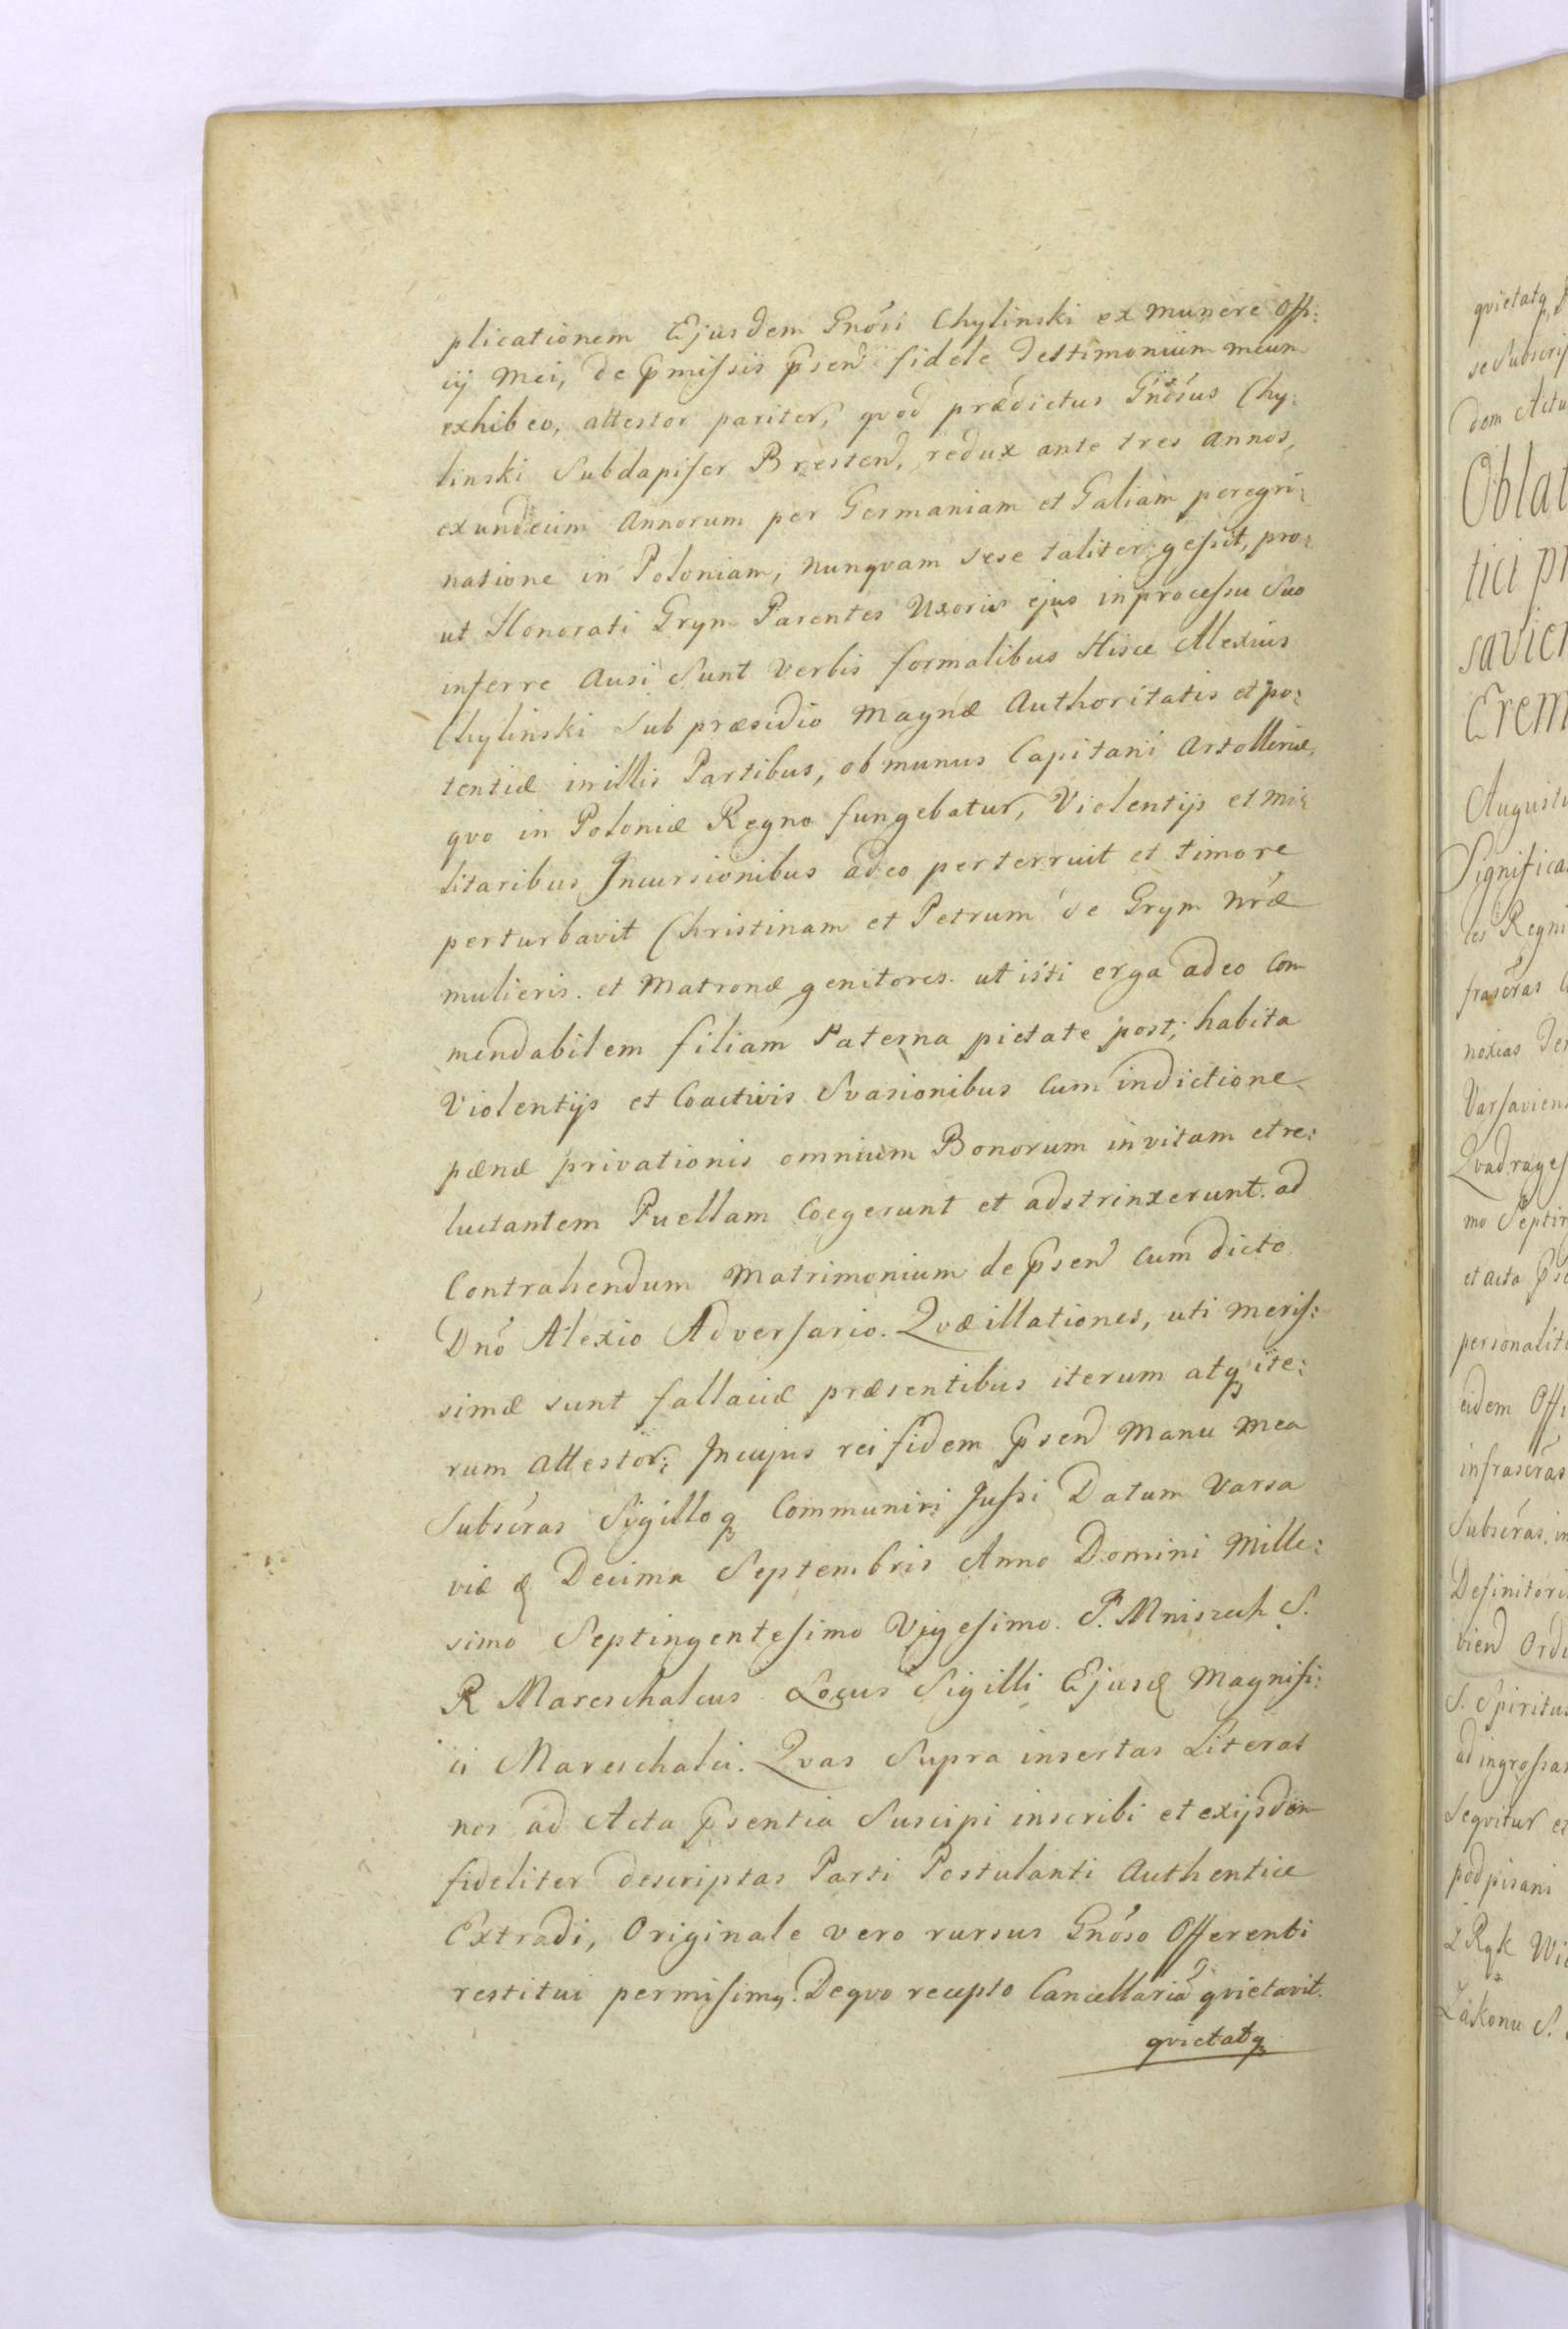 plicationem Ejusdem Gnósi Chylinski ex munere Offi:
ij Mei, de pmissis psen fidele Testimonium meum
exhibeo, attestor pariter, qvod prædictus Gnósus Chy:
linski Subdapifer Bresten, redux ante tres annos,
ex undecim Annorum per Germaniam et Galiam peregri:
natione in Poloniam, nunqvam sese taliter gessit, pro:
ut Honorati Grym Parentes Uxoris ejus in processu Suo
inferre Ausi Sunt verbis formalibus Hisce Alexius
Chylinski Sub præsidio Magnæ Authoritatis et po:
tentiæ in illis Partibus, ob munus Capitani Artolleriæ,
qvo in Poloniæ Regno fungebatur, Violentijs et mi:
litaribus Incursionibus adeo perterruit et timore
perturbavit Christinam et Petrum de Grym nræ
mulieris. et Matronæ genitores. ut isti erga adeo Com
mendabilem filiam Paterna pietate post, habita
Violentijs et Coactivis Svasionibus Cum indictione
pænæ privationis omnium Bonorum invitam et re:
luctantem Puellam Coegerunt et adstrinxerunt. ad
Contrahendum Matrimonium de psen Cum dicto
Dnó Alexio Adversario. Qvæ illationes, uti meris:
simæ sunt fallaciæ præsentibus iterum atq ite:
rum attestor; In cujus rei fidem psen Manu mea
Subscras Sigilloq Communiri Jussi Datum Varsa
viæ d Decima Septembris Anno Domini Mille:
simo Septingentesimo Vigesimo. P. Mniszech S.
R Mareschalcus Locus Sigilli Ejusd Magnifi:
ci Mareschalci. Qvas Supra insertas Literas
nos ad Acta psentia Suscipi inscribi et exijsdem
fideliter descriptas Parti Postulanti Authentice
Extradi, Originale vero rursus Gnóso Offerenti
restitui permisimq. De qvo recepto Cancellariã qvietavit.
qvietatq
qvietatq
se Subscri
dem Actu
Oblat
tici pr
savien
Erem
Augustu
Significa
les Regni
frascras
noxias
Varsaviens
Qvadrages
mo Septin
et acta
personalit
eidem Offi
infrascras
Subscras in
Definitori
vien Ordi
S. Spiritus
ad ingrossan
Seqvitur et
podpisani
z
Zakonu S.